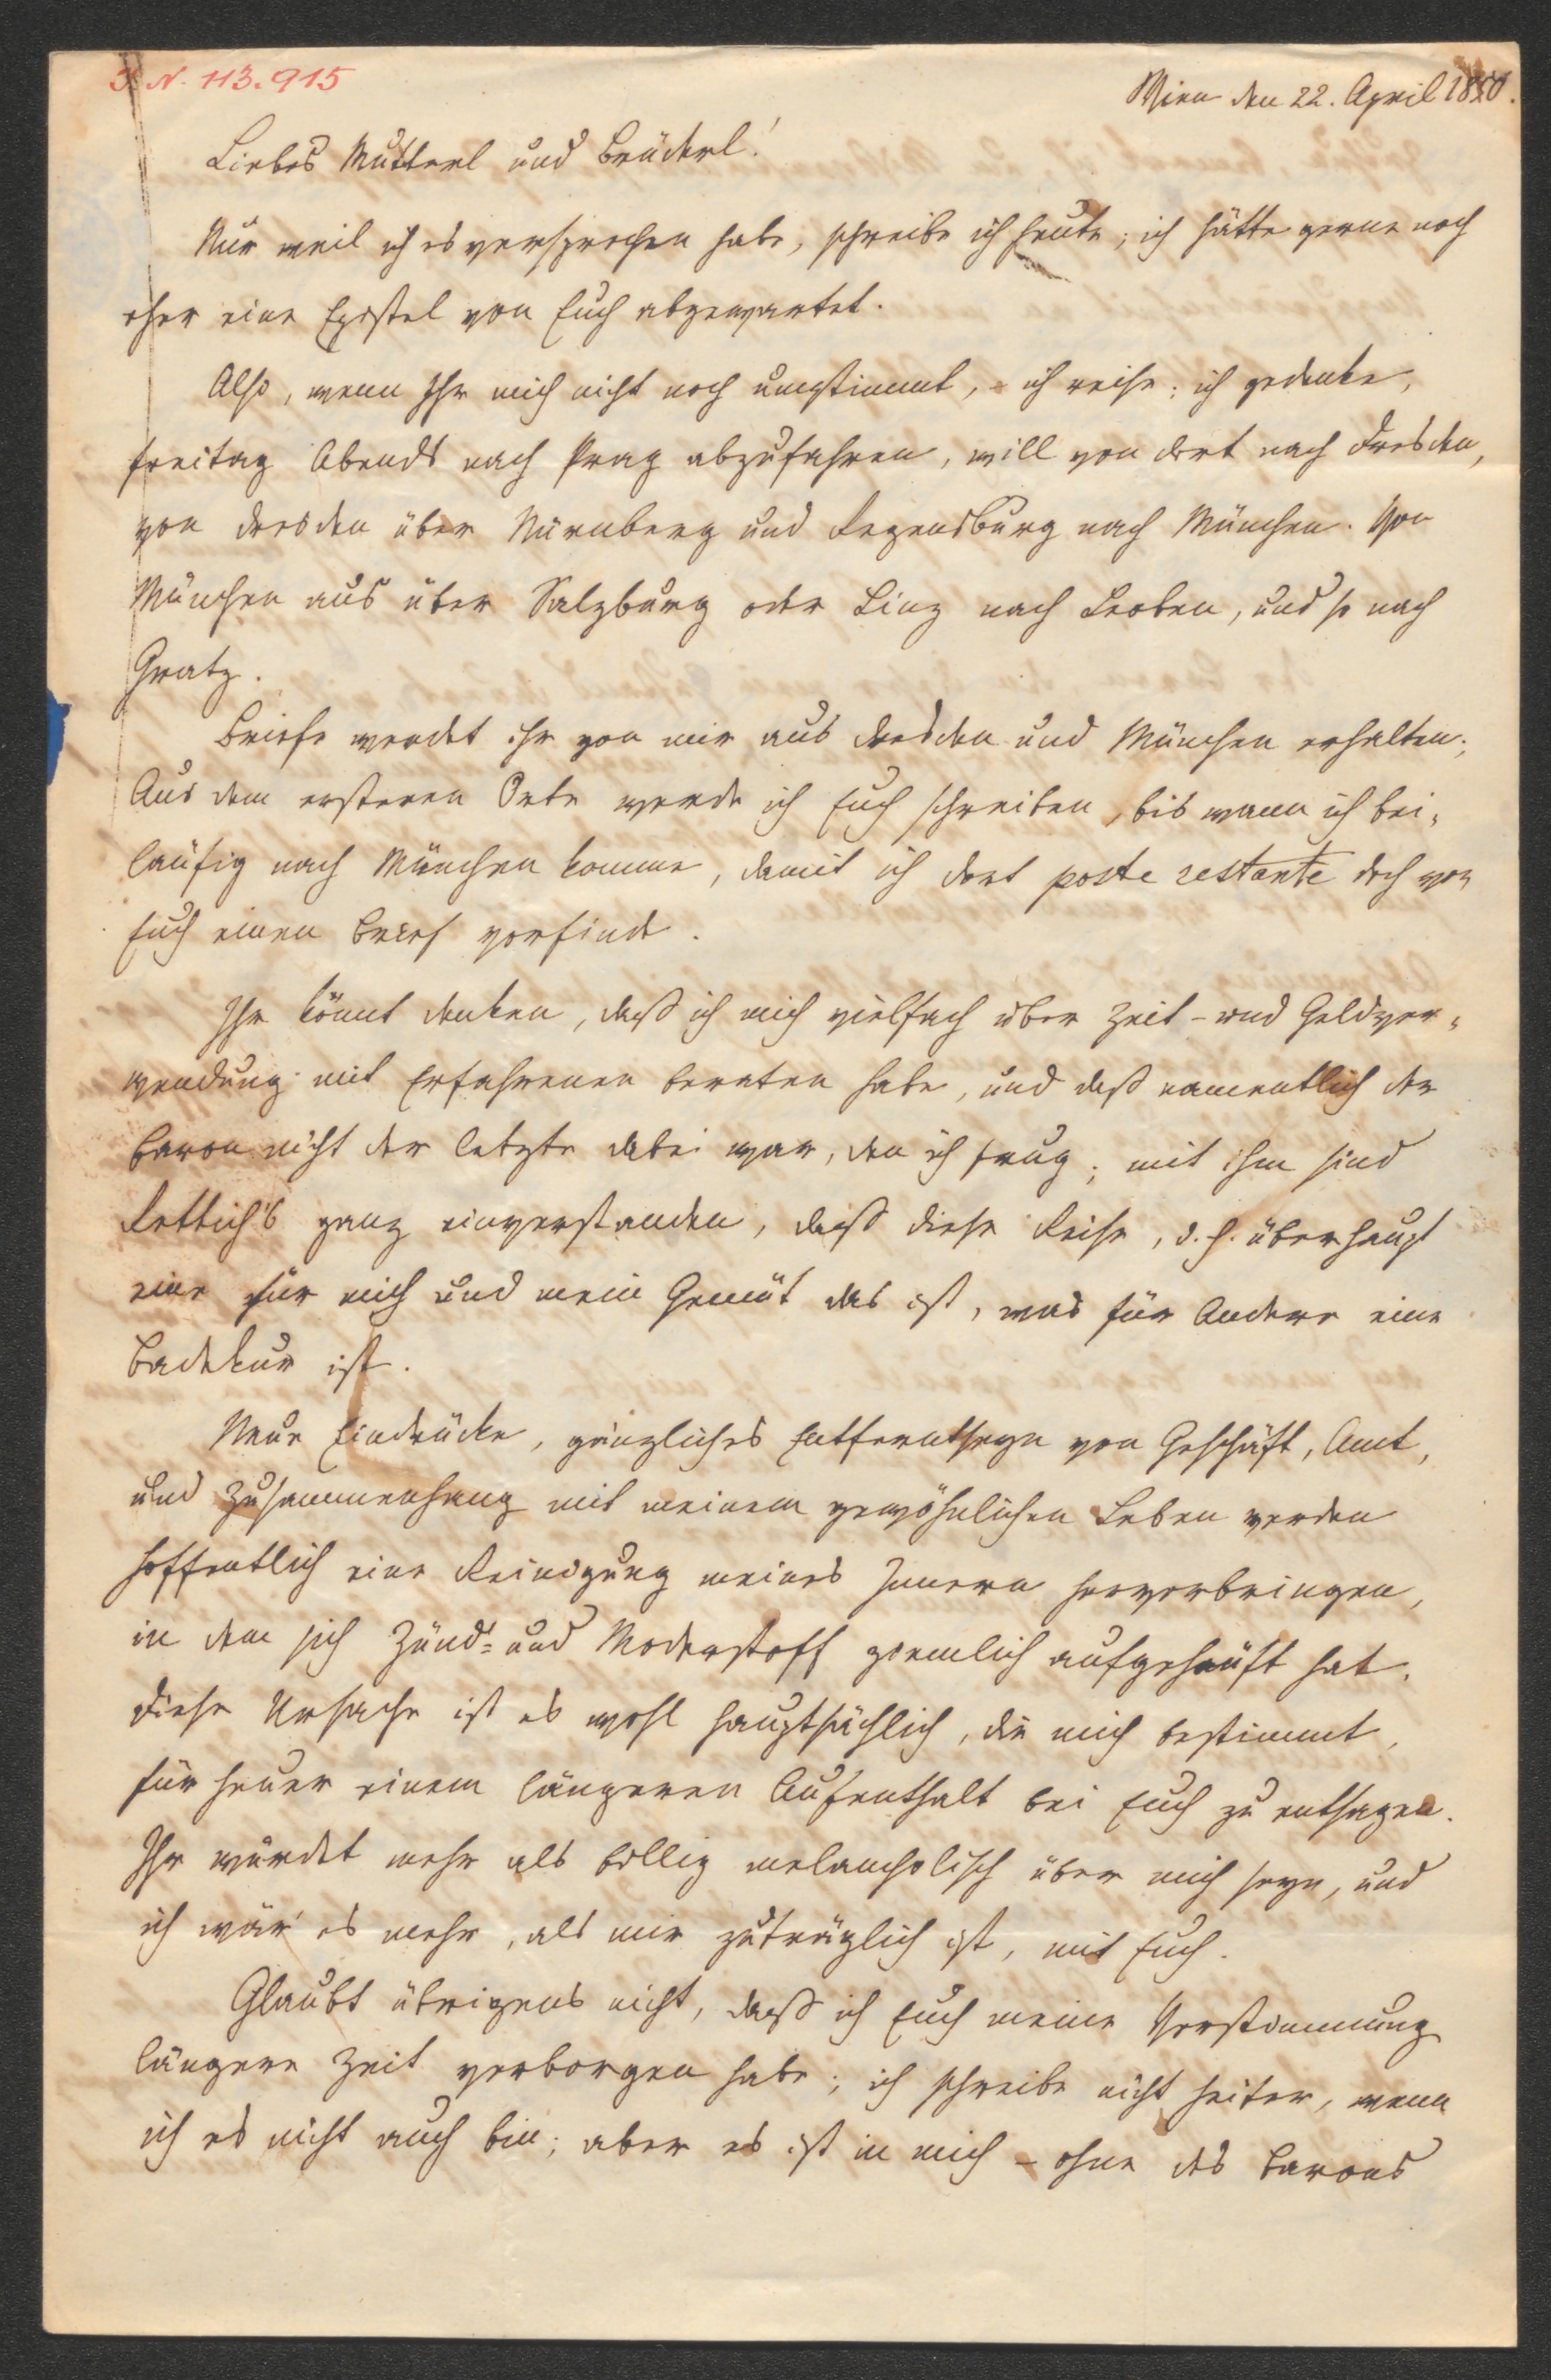 I. N. 113.915
Wien den 22. April 1850.
Liebes Mutterl und Brüderl!
Nur weil ich es versprochen habe, schreibe ich heute; ich hätte gerne noch
eher eine Epistel von Euch abgewartet.
Also, wenn Ihr mich nicht noch umstimmt, – ich reise; ich gedenke,
Freitag Abends nach Prag abzufahren, will von dort nach Dresden,
von Dresden über Nürnberg und Regensburg nach München. Von
München aus über Salzburg oder Linz nach Leoben, und so nach
Gratz.
Briefe werdet ihr von mir aus Dresden und München erhalten;
Aus dem ersteren Orte werde ich Euch schreiben, bis wann ich bei-
läufig nach München komme, damit ich dort poste restante doch von
Euch einen Brief vorfinde.
Ihr könnt denken, daß ich mich vielfach über Zeit- und Geldver-
wendung mit Erfahrenen beraten habe, und daß namentlich der
Baron nicht der letzte dabei war, den ich frug; mit ihm sind
Rettich's ganz einverstanden, daß diese Reise, d. h. überhaupt
eine für mich und mein Gemüt das ist, was für Andere eine
Badekur ist.
Neue Eindrücke, gänzliches Entferntseyn von Geschäft, Amt,
und Zusammenhang mit meinem gewöhnlichen Leben werden
hoffentlich eine Reinigung meines Innern hervorbringen,
in dem sich Zünd- und Moderstoff ziemlich aufgehäuft hat.
Diese Ursache ist es wohl hauptsächlich, die mich bestimmt,
für heuer einem längeren Aufenthalt bei Euch zu entsagen.
Ihr würdet mehr als billig melancholisch über mich seyn, und
ich wär' es mehr, als mir zuträglich ist, mit Euch.
Glaubt übrigens nicht, daß ich Euch meine Verstimmung
längere Zeit verborgen habe; ich schreibe nicht heiter, wenn
ich es nicht auch bin; aber es ist in mich – ohne des Barons